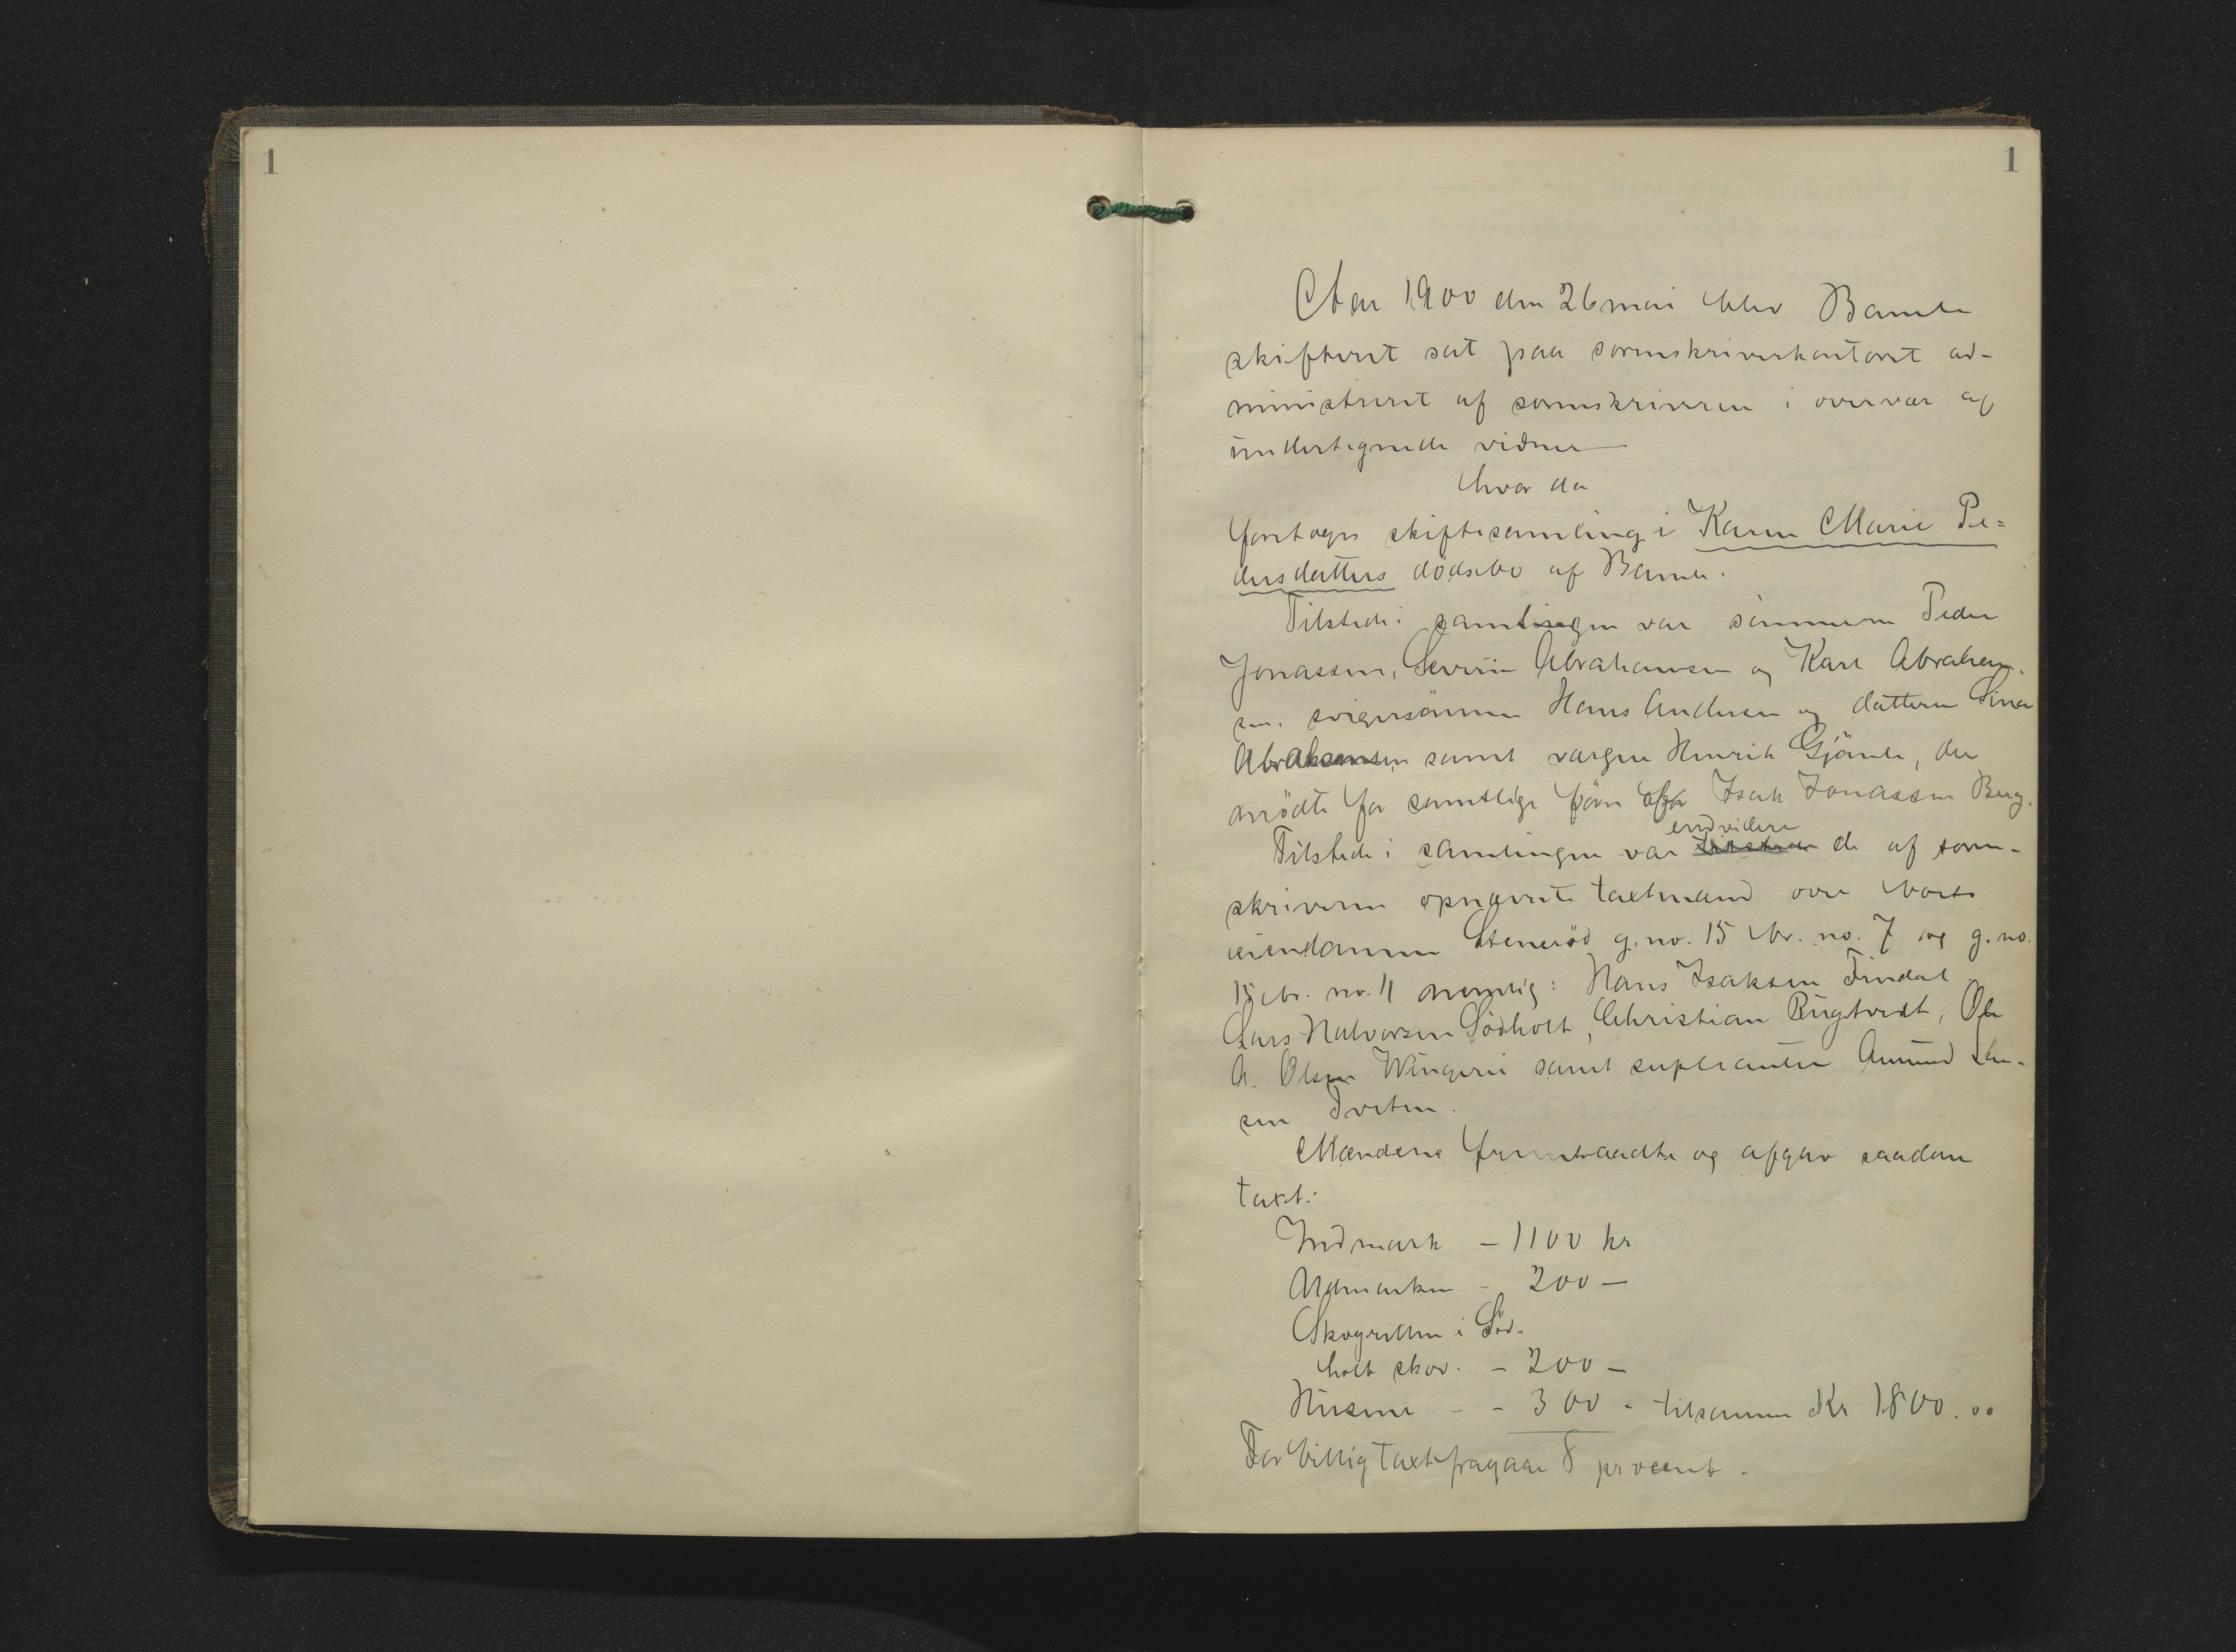 1
1
Aar 1900 den 26 mai blev Bamle
skifteret sat paa sorenskriverkontoret ad-
ministreret af sorenskriveren i overvær af
undertegnede vidner
hvor da
foretoges skiftesamling i Karen Marie Pe-
dersdatters dödsbo af Bamle.
Tilstede i samlingen var sönnerne Peder
Jonassen, Severin Abrahamsen og Karl Abraham-
sen, svigersönnen Hans Andersen og datteren Sina
Abrahamsen samt værgen Henrik Gjömle, der
mödte for samtlige börn af Isak Jonassen Berg.
endvidere
Tilstede i samlingen var de af soren-
skriveren opnævnte taxtmænd over boets
eiendomme Steneröd g.no. 15 br. no. 7 og g. no.
15 br. no. 11 nemlig: Hans Isaksen Findal
Lars Halvorsen Södholt, Christian Rugtvedt, Ole
A. Olsen Wingerei samt supleanten Amund Lar-
sen Tveten.
Mændene fremtraadte og afgav saadan
taxt:
Indmark – 1100 kr
Udmarken – 200 –
Skogretten i Söd-
holt skov. – 200 –
Husene – – 300 – tilsammen Kr 1800.00
For billig taxt fragaar 8 procent.